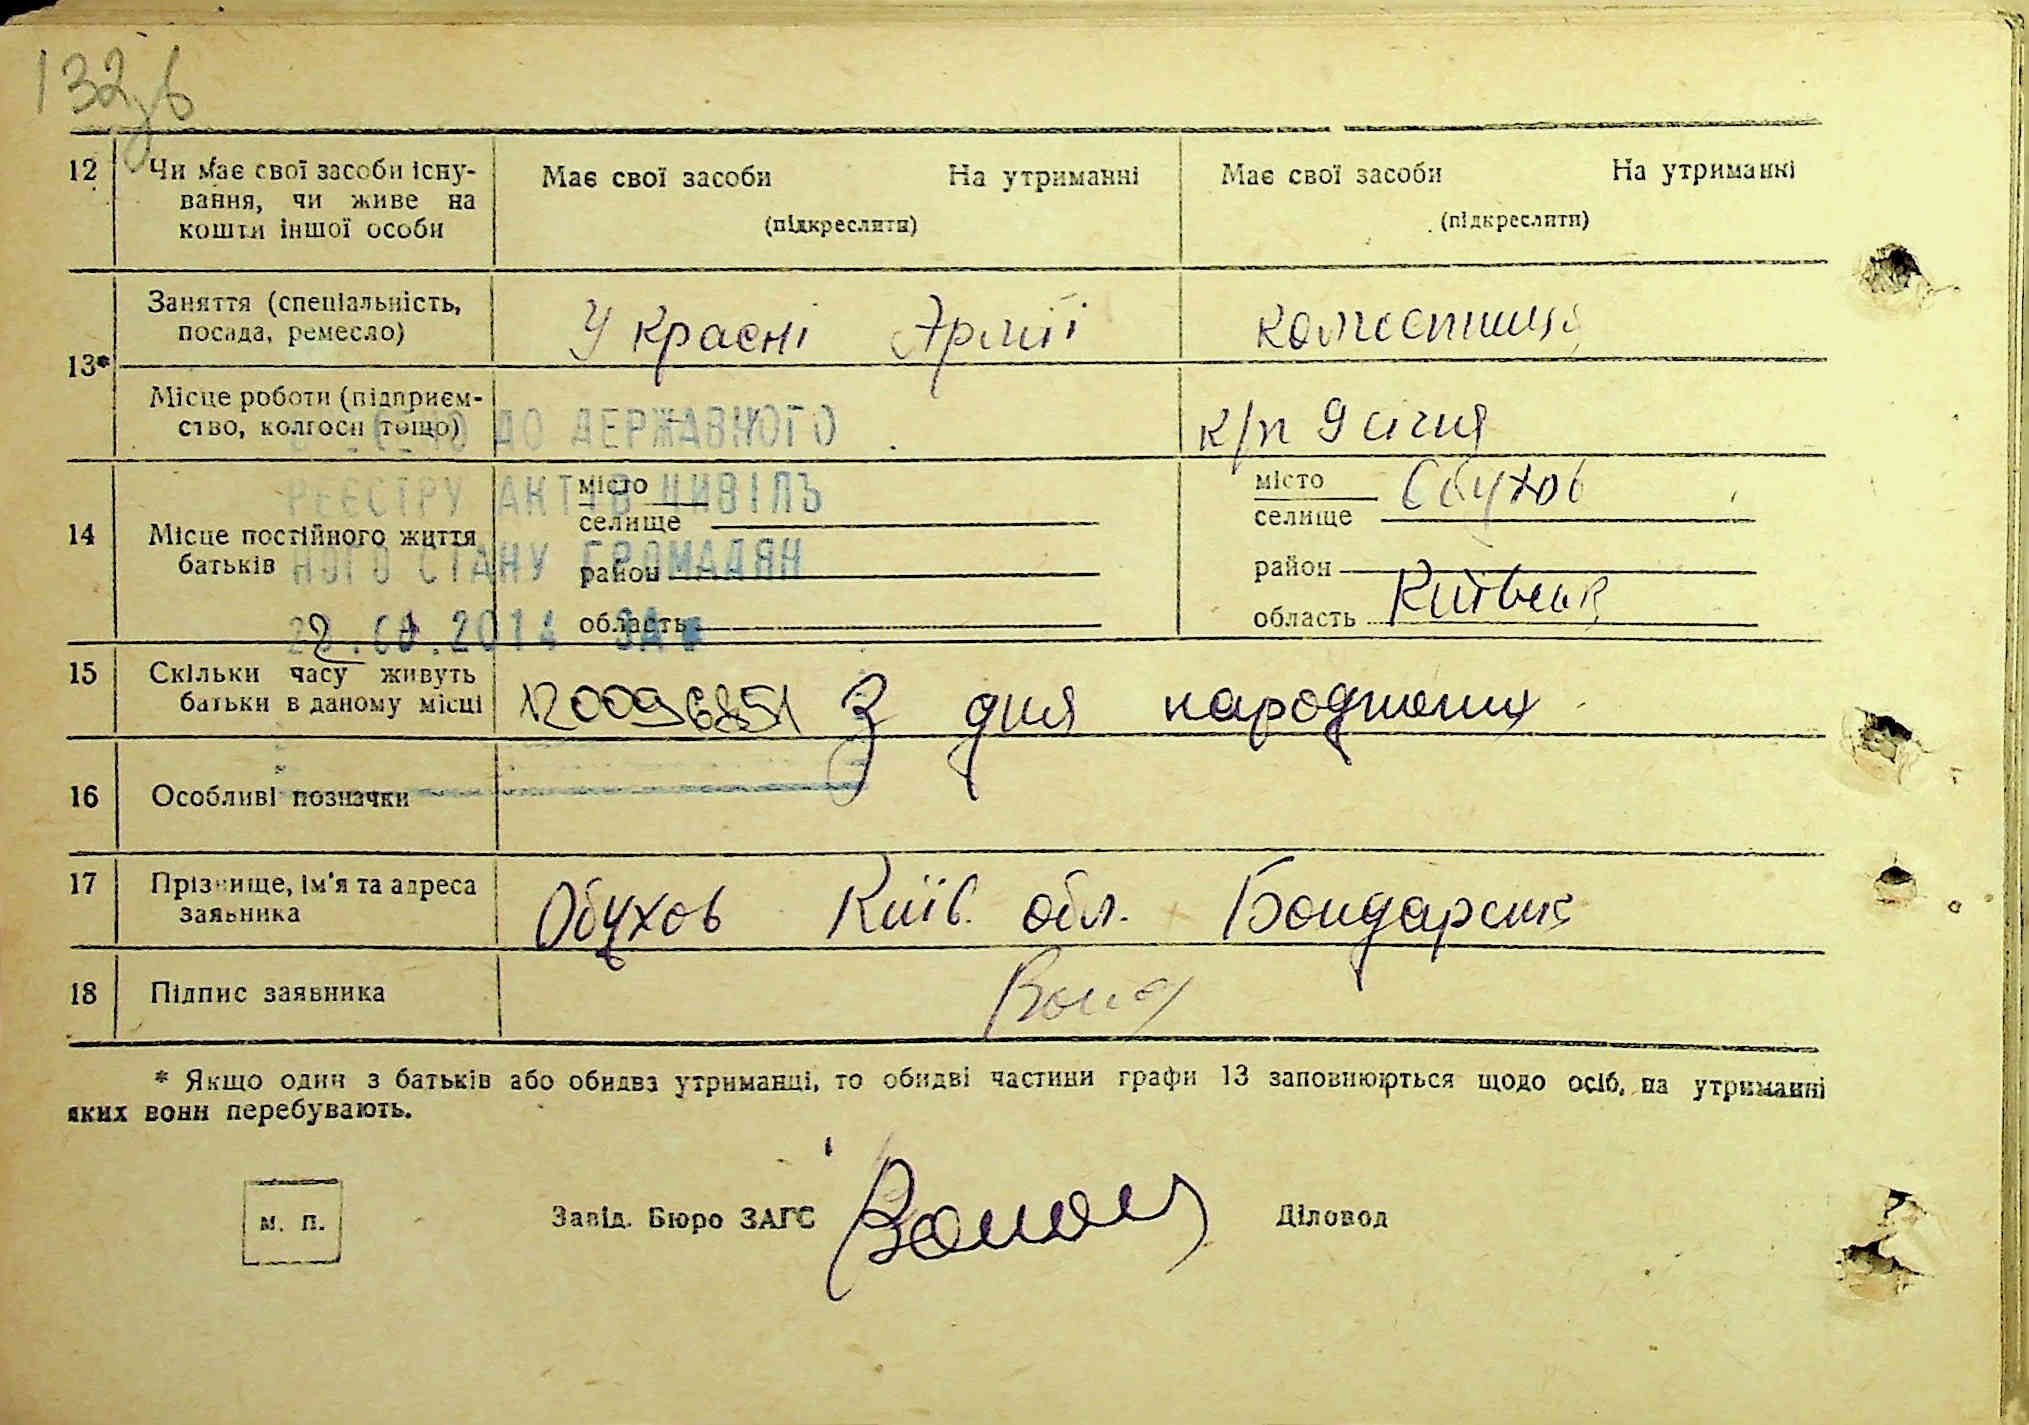 132
12 Чи має свої засоби існу-
вання, чи живе на
кошти іншої особи
Має свої засоби На утриманні
(підкреслити)
Має свої засоби На утриманні
(підкреслити)
13*
Заняття (спеціальність,
посада, ремесло)
У Красні Армії
колгоспниця
Місце роботи (підприєм-
ство, колгосп тощо)
к/п 9 січня
ДО ДЕРЖАВНОГО
РЕЄСТРУ АКТІВ ЦИВІЛЬ
НОГО СТАНУ ГРОМАДЯН
2014 ЗА №
14 Місце постійного життя
батьків
місто
селище
район
область
місто Обухов
селище
район
область Київськ
15 Скільки часу живуть
батьки в даному місці
120096851 З дня народження
16 Особливі позначки
17 Прізвище, ім'я та адреса
заявника
Обухов Київ. обл. Бондаренк
18 Підпис заявника
Бонд
* Якщо один з батьків або обидва утриманці, то обидві частини графи 13 заповнюються щодо осіб, на утриманні
яких вони перебувають.
м. п.
Завід. Бюро ЗАГС
Діловод